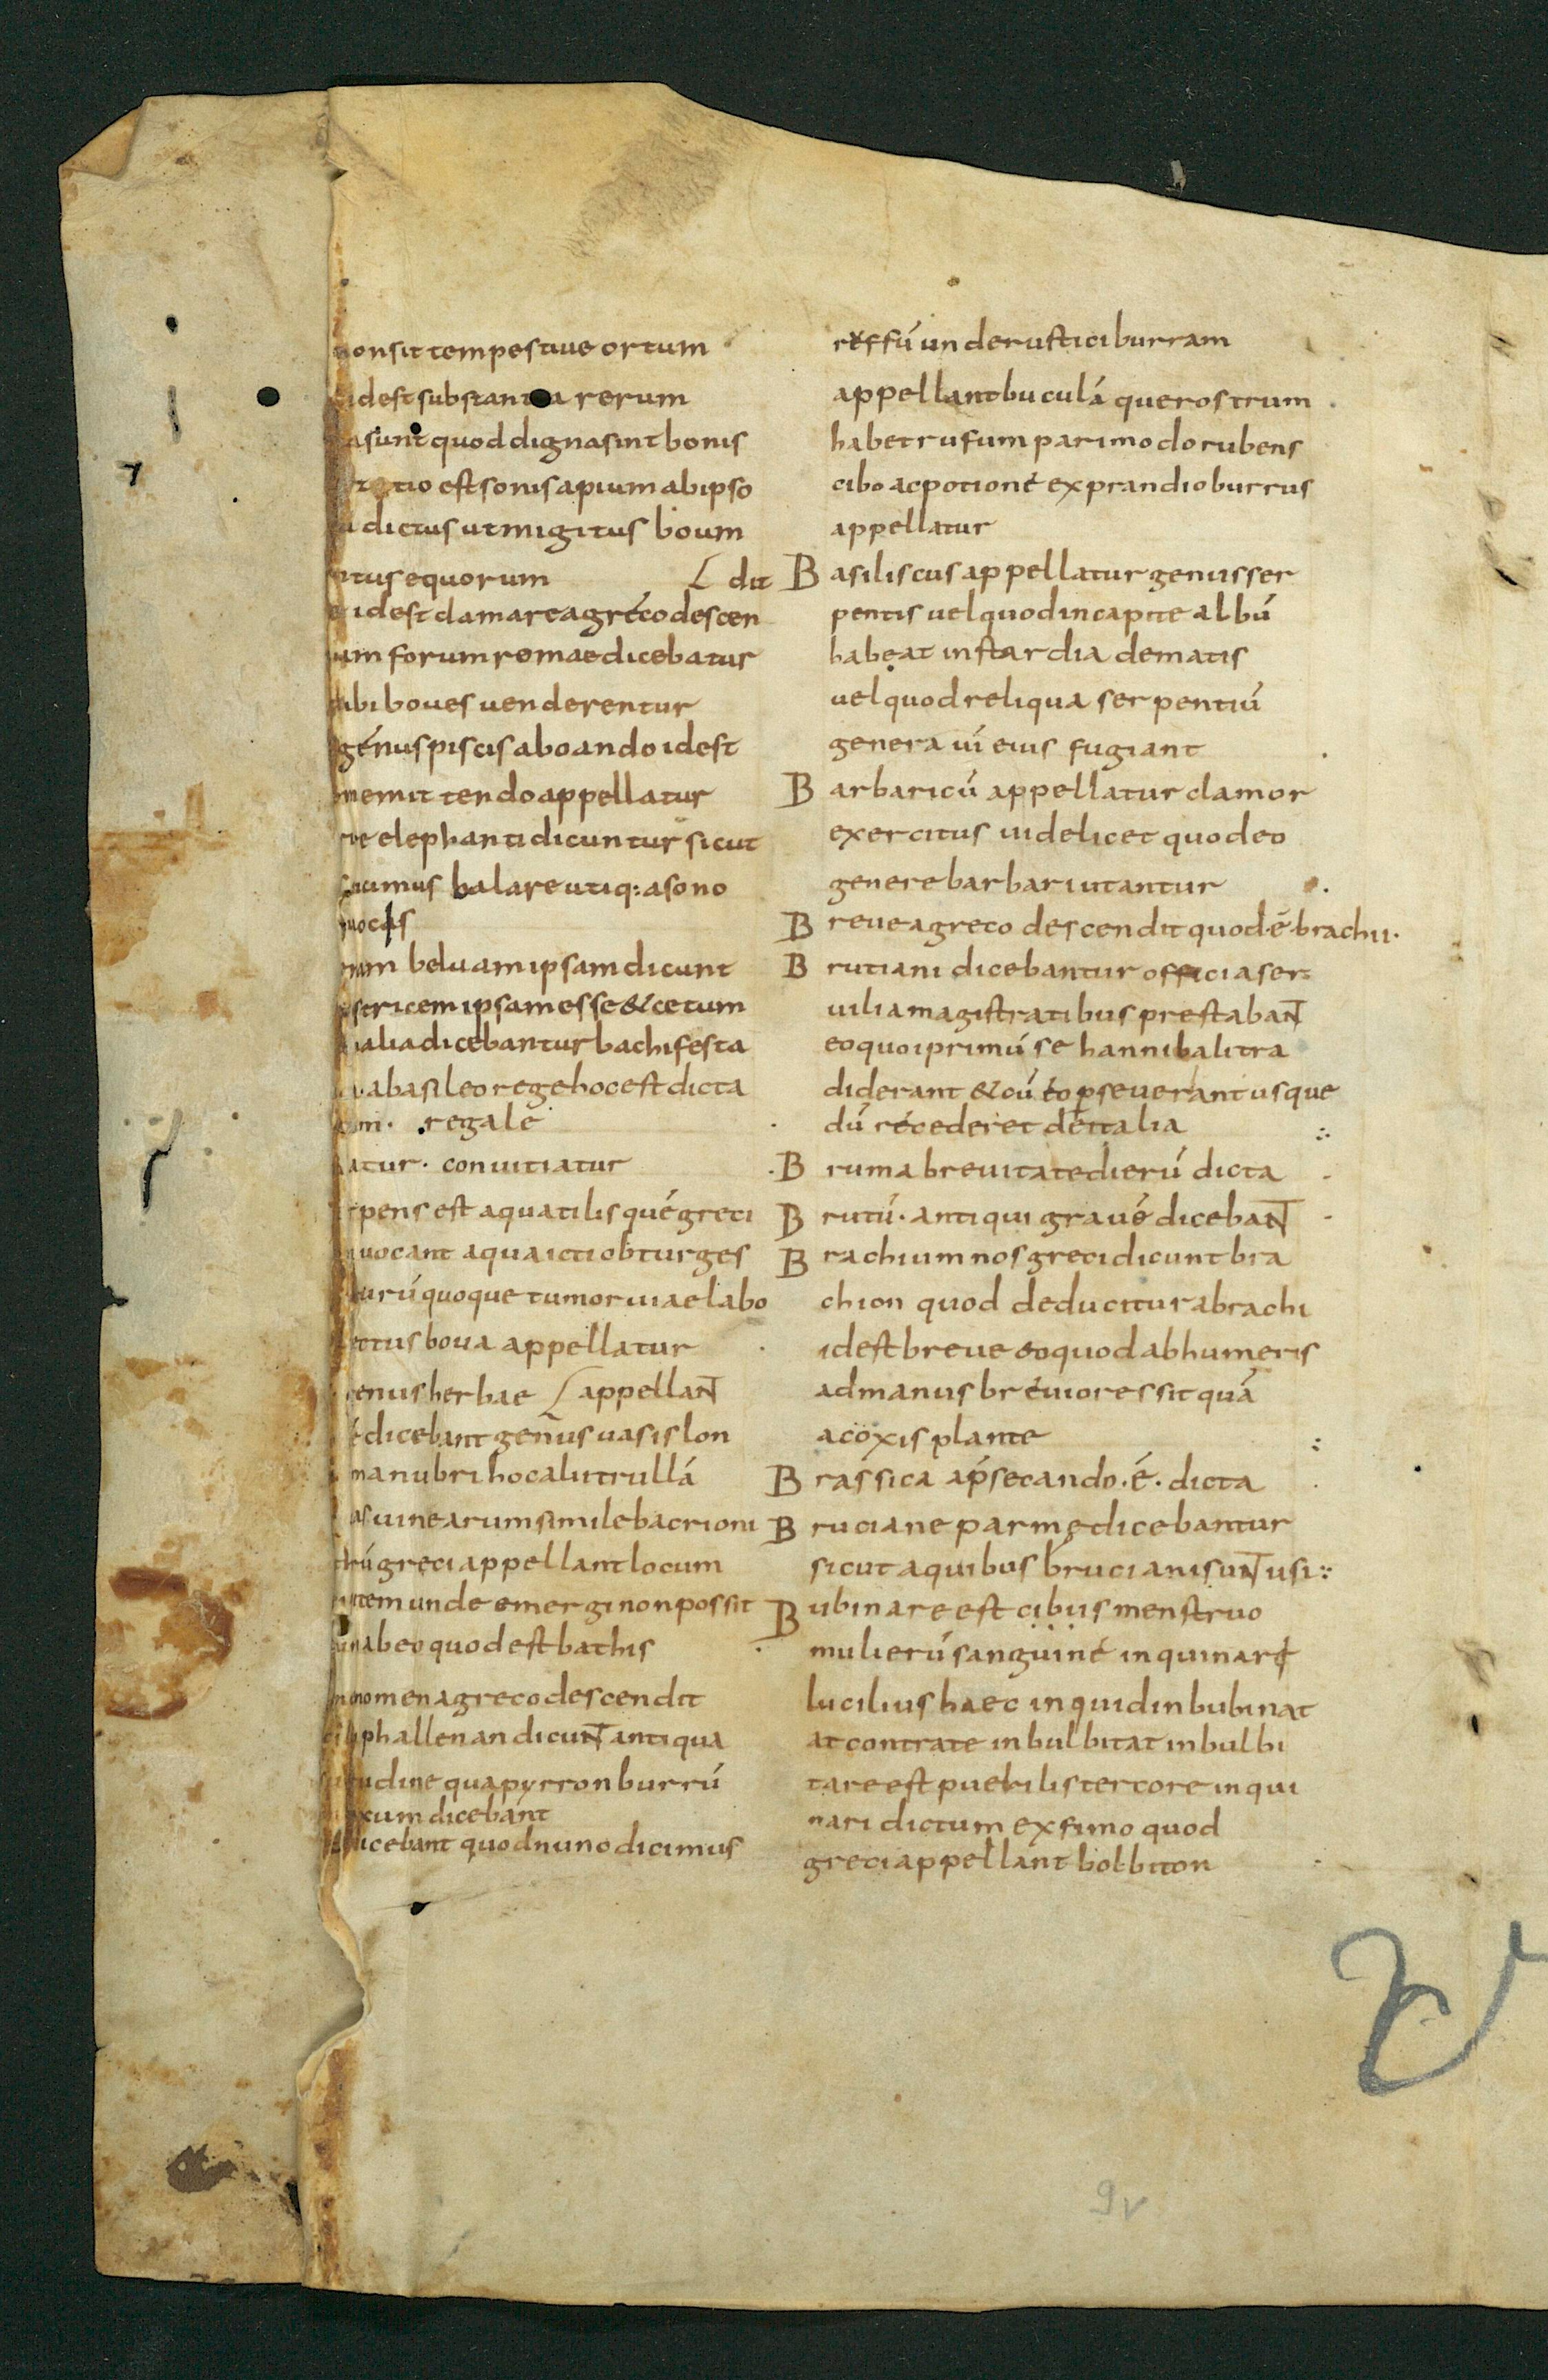 non sit tempestiue ortum
id est substantia rerum
a sunt quod digna sint bonis
est sonis apium ab ipso
dictus ut migitus boum
itus equorum
⌊ dit
id est clamare a gréco descen
um forum romae dicebatur
ubi boues uenderentur
génus piscis a boando id est
mittendo appellatur
elephanti dicuntur sicut
dicimus balare utiq: a sono
uocis
beluam ipsam dicunt
tricem ipsam esse & cetum
alia dicebantur bachi festa
a basileo rege hoc est dicta
regale
atur · conuitiatur
rpens est aquatilis qué greci
uocant a qua icti obturges
rurú quoque tumor uiae labo
ctus boua appellatur
enus herbae ⌊ appellaNT
é dicebant genus uasis lon
manubri hoc alii trullá
as uinearum simile bacrioni
thrú greci appellant locum
item unde emergi non possit
ab eo quod est bathis
nomen a greco descendit
phallenan dicuNT antiqua
udine qua pyrron burrú
xum dicebant
dicebant quod nunc dicimus
reffú unde rustici burram
appellant buculá que rostrum
habet rufum pari modo rubens
cibo ac potioné ex prandio burrus
appellatur
B asiliscus appellatur genus ser
pentis uel quod in capite albú
habeat instar diadematis
uel quod reliqua serpentiú
genera uí eius fugiant
B arbaricú appellatur clamor
exercitus uidelicet quod eo
genere barbari utantur
B reue a greco descendit quod é brachii·
B rutiani dicebantur officia ser
uilia magistratibus prestabaNT
eo quo i primú se hannibali tra
diderant & cú eo pseuerant usque
dú récederet de italia
B ruma breuitate dierú dicta
B rutú · antiqui graué dicebaNT
B rachium nos greci dicunt bra
chion quod deducitur a brachi
id est breue eo quod ab humeris
ad manus bréuiores sit quá
a coxis plante
B rassica a psecando · é · dicta
B ruciane parmę dicebantur
sicut a quibus bruciani suNT usi
B ubinare est cibus menstruo
mulierú sanguiné inquinare
lucilius haec inquid inbubinat
at contra te inbulbitat inbulbi
tare est puerili stercore inqui
nari dictum ex fimo quod
greci appellant bolbiton
9v